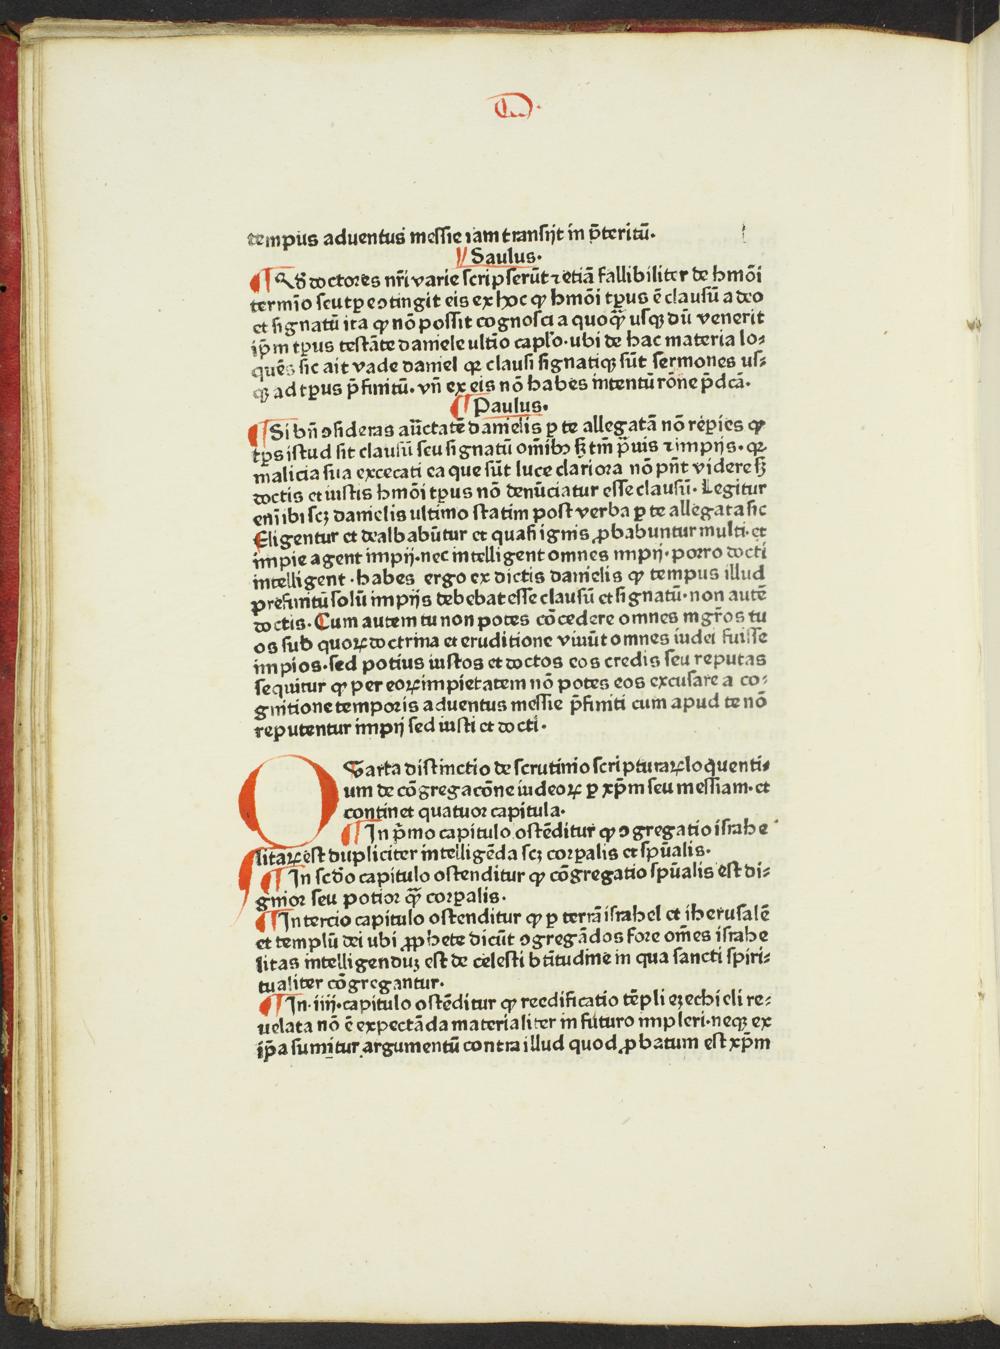 tempus aduentus messie iam transijt in p̄teritū.
Saulus.
Qđ doctores nr̄i varie scripserūt ⁊ etiā fallibiliter de hmōi
termīo seu tꝑe ꝯtingit eis ex hoc ꝙ hmōi tꝑus ē clausū a deo
et signatū ita ꝙ nō possit cognosci a quoqȝ̄ usqȝ dū venerit
ip̄m tꝑus testāte daniele ultīo caplō. ubi de hac materia lo⸗
quēs sic ait vade daniel qꝛ clausi signatiqȝ sūt sermones us⸗
qȝ ad tꝑus p̄finitū. vn̄ ex eis nō habes intentū rōne p̄dcā.
Paulus.
Si bn̄ ꝯsideras auc̄tatē danielis ꝑ te allegatā nō reꝑies ꝙ
tꝑs istud sit clausū seu signatū om̄ibȝ sȝ tm̄ p̄uis ⁊ impijs. qꝛ
malicia sua excecati ea que sūt luce clariora nō pn̄t videre sȝ
doctis et iustis hmōi tꝑus nō denūciatur esse clausū. Legitur
eni ibi scȝ danielis ultimo statim post verba ꝑ te allegata sic
Eligentur et dealbabūtur et quasi ignis ꝓbabuntur multi. et
impie agent impij. nec intelligent omnes impij. porro docti
intelligent. habes ergo ex dictis danielis ꝙ tempus illud
prefinitū solū impijs debebat esse clausū et signatū. non autē
doctis. Cum autem tu non potes cōcedere omnes mgr̄os tu
os sub quoꝝ doctrina et eruditione viuūt omnes iudei fuisse
impios. sed potius iustos et doctos eos credis seu reputas
sequitur ꝙ per eoꝝ impietatem nō potes eos excusare a co⸗
gnitione temporis aduentus messie p̄finiti cum apud te nō
reputentur impij sed iusti et docti.
Quarta distinctio de scrutinio scripturaꝝ loquenti⸗
um de cōgregacōne iudeoꝝ ꝑ xp̄m seu messiam. et
continet quatuor capitula.
In p̄mo capitulo ostēditur ꝙ ꝯgregatio israhe
litaꝝ est dupliciter intelligēda scȝ corꝑalis et spūalis.
In scđo capitulo ostenditur ꝙ cōgregatio spūalis est di⸗
gnior seu potior qȝ̄ corꝑalis.
In tercio capitulo ostenditur ꝙ ꝑ terrā israhel et iherusalē
et templū dei ubi ꝓphete dicūt ꝯgregādos fore om̄es israhe
litas intelligenduȝ est de celesti btītudine in qua sancti spiri⸗
tualiter cōgregantur.
In. iiij. capitulo ostēditur ꝙ reedificatio tēpli eȝechieli re⸗
uelata nō ē expectāda materialiter in futuro impleri. neqȝ ex
ip̄a sumitur argumentū contra illud quod ꝓbatum est xp̄m